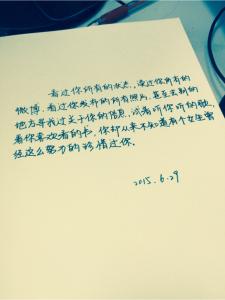 看过你所有的状态，读过你所有的
微博，看过你发布的所有照片，甚至去别的
地方寻找过关于你的信息，试着听你听的歌，
看你喜欢看的书，你却从来不知道有个女生曾
经这么努力的珍惜过你。
2015.6.29